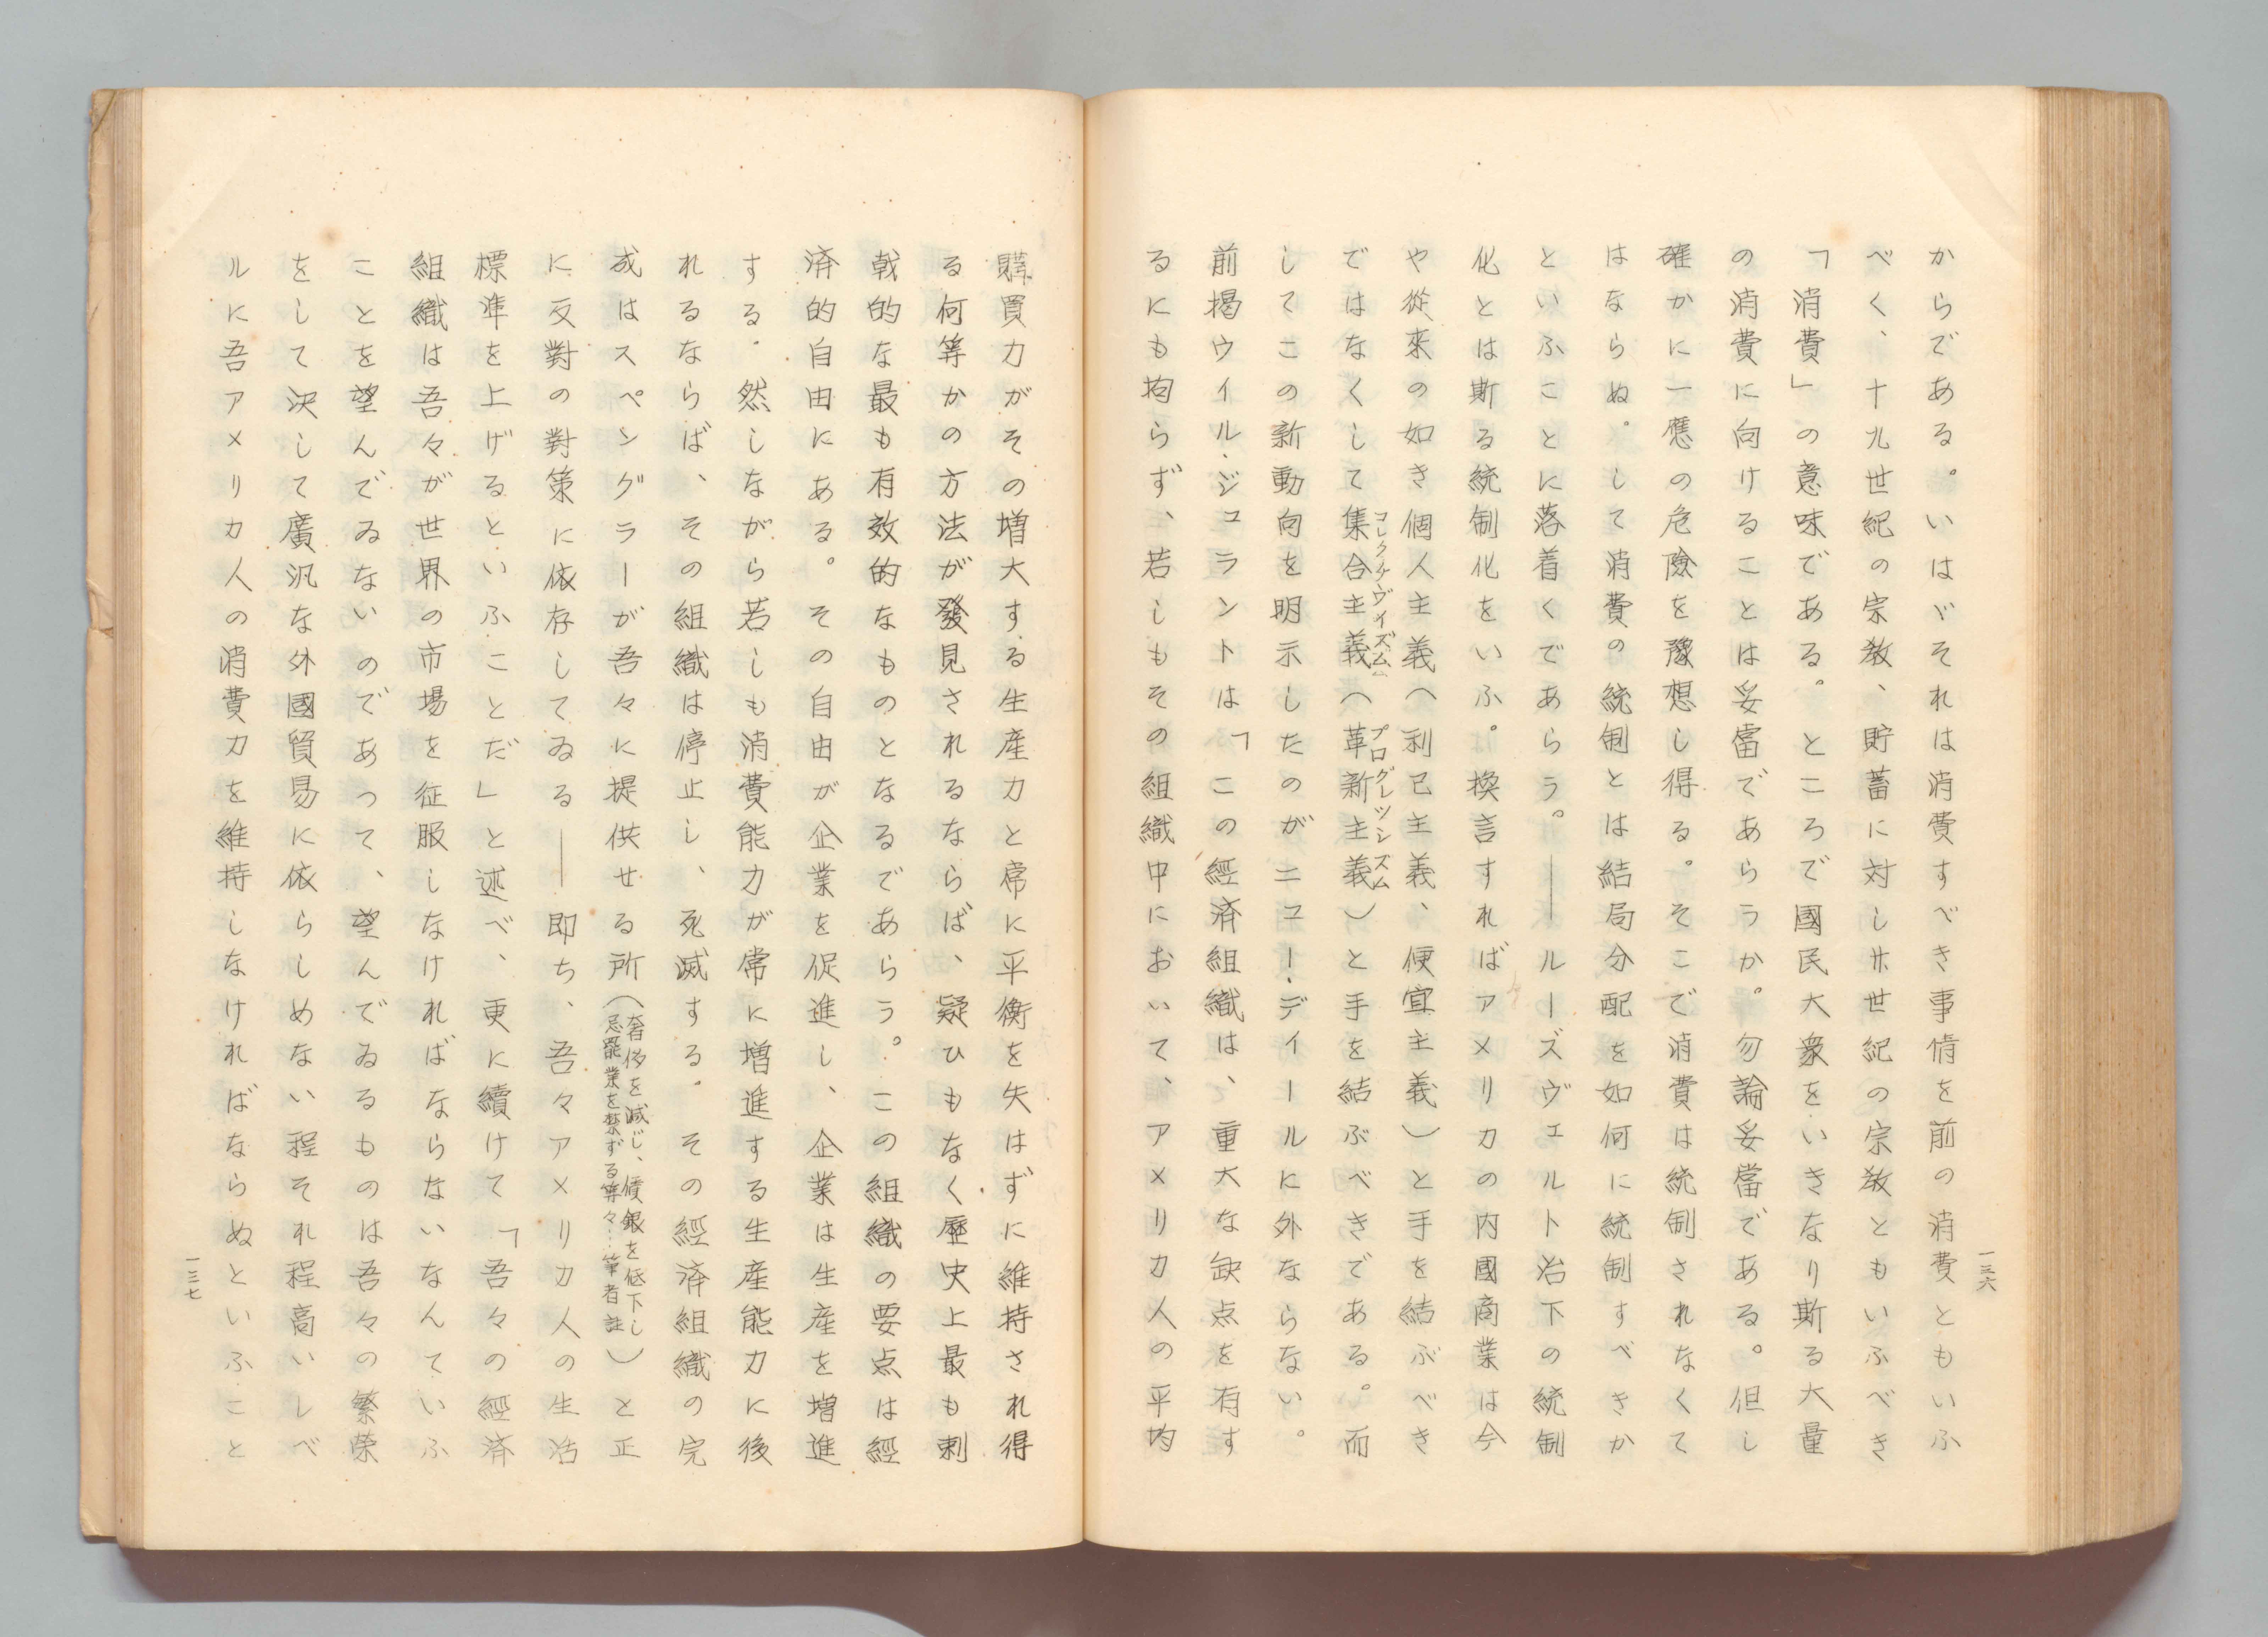 一三六
からである。いはゞそれは消費すべき事情を前の消費ともいふ
べく、十九世紀の宗教、貯蓄に対し廿世紀の宗教ともいふべき
「消費」の意味である。ところで國民大衆をいきなり斯る大量
の消費に向けることは妥當であらうか。勿論妥當である。但し
確かに一應の危險を豫想し得る。そこで消費は統制されなくて
はならぬ。して消費の統制とは結局分配を如何に統制すべきか
といふことに落着くであらう。――ルーズヴェルト治下の統制
化とは斯る統制化をいふ。換言すればアメリカの内國商業は今
や從來の如き個人主義（利己主義、便宜主義）と手を結ぶべき
コレクチヴィズム プログレッシズム
ではなくして集合主義（革新主義）と手を結ぶべきである。而
してこの新動向を明示したのがニユー・デイールに外ならない。
前掲ウイル・ジユラントは「この經済組織は、重大な缺点を有す
るにも拘らず、若しもその組織中において、アメリカ人の平均
購買力がその増大する生産力と常に平衡を失はずに維持され得
る何等かの方法が發見されるならば、疑ひもなく歴史上最も刺
戟的な最も有效的なものとなるであらう。この組織の要点は經
済的自由にある。その自由が企業を促進し、企業は生産を増進
する。然しながら若しも消費能力が常に増進する生産能力に後
れるならば、その組織は停止し、死滅する。その經済組織の完
成はスペングラーが吾々に提供せる所（奢侈を減じ、賃銀を低下し
忌罷業を禁ずる等々…筆者註）と正
に反對の對策に依存してゐる――即ち、吾々アメリカ人の生活
標準を上げるといふことだ」と述べ、更に續けて「吾々の經済
組織は吾々が世界の市場を征服しなければならないなんていふ
ことを望んでゐないのであつて、望んでゐるものは吾々の繁榮
をして決して廣汎な外國貿易に依らしめない程それ程高いレベ
ルに吾アメリカ人の消費力を維持しなければならぬといふこと
一三七